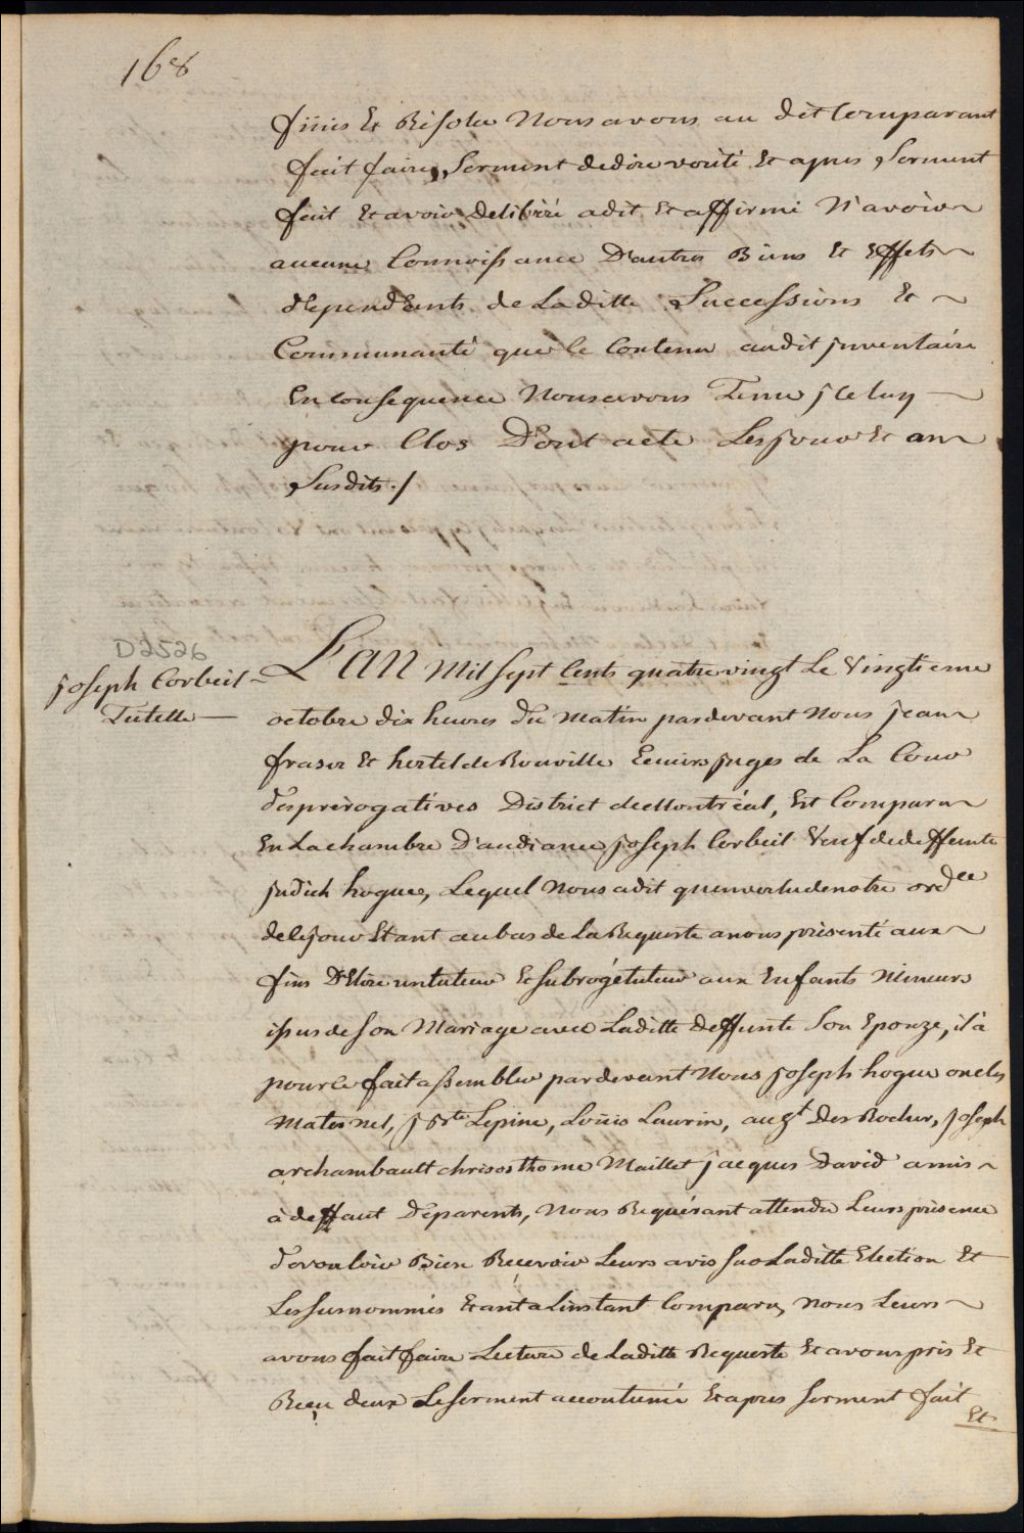 168
finis Et Résolu Nous avons au dit Comparant
fait faire Serment dedire verité Et apres Serment
fait Et avoir Deliberé adit Et affirmé N'avoir
aucune Connoissance D'autres Biens Et Effets
dependents de Laditte Successions Et
Communauté que le Contenu audit jnventaire
En consequence Nous avons Tenu jCeluy
pour Clos Dont acte Les jour Et an
Susdits ./
D2526
joseph Corbeil
Tutelle
L'an Mil Sept Cents quatre vingt Le Vingtieme
octobre dix heures du Matin pardevant Nous jean
fraser Et hertel de Rouville Ecuiers juges de La Cour
des prérogatives District de Montréal, Est Comparu
En La chambre D'audiance joseph Corbeil Veuf de deffeunte
judich hogue, Lequel Nous adit quenvertu de notre ordce
de cejour Etant au bas de La Requeste anous présenté aux
fins D'Elire untuteur Et subrogétuteur aux Enfants Mineurs
issus de Son Mariage avec Laditte deffunte Son Epouze, il à
pour ce fait assembler pardevant Nous joseph hogue oncles
Maternel, j Bte Lepine, Loüis Laurin, augt Des Rocher, joseph
archambault chrisosthome Maillet jacques David amis
à deffaut Deparents, Nous Requérant attendu Leurs présence
de vouloir Bien Recevoir Leurs avis Sur Laditte Election Et
Les susnommés Etant a Linstant Comparu, Nous Leurs
avons fait faire Lecture de Laditte Requeste Et avons pris Et
Reçu deux Le serment accoutumé Et apres serment fait
Et